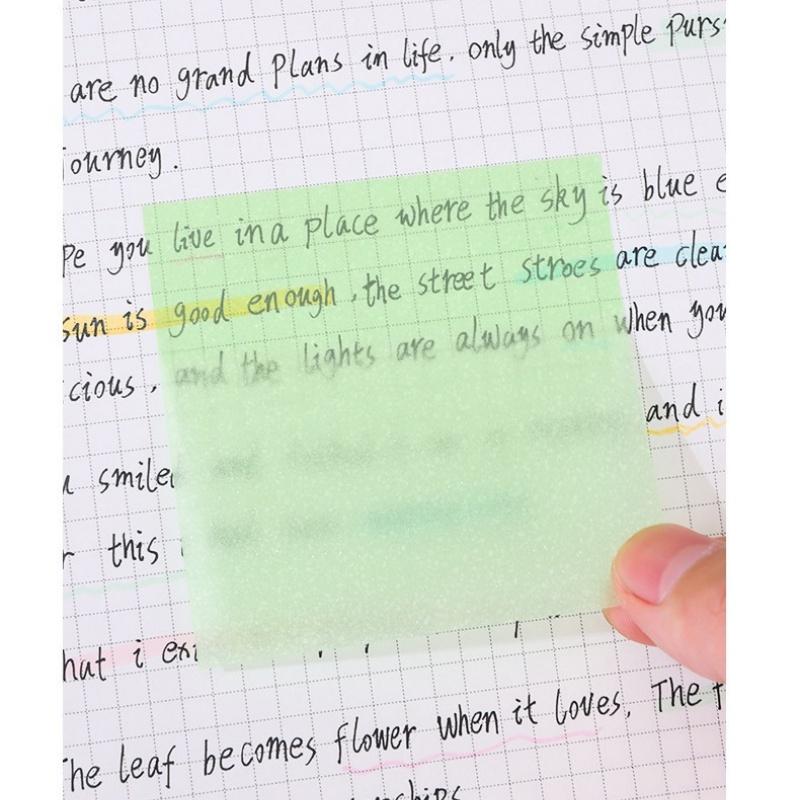 are no grand plans in life. only the simple purs
ourney.
pe you live in a place where the sky is blue e
sun is good enough, the street stroes are clea
cious, and the lights are always on when you
smile and i
this
hat i exi
he leaf becomes flower when it loves. The
ships